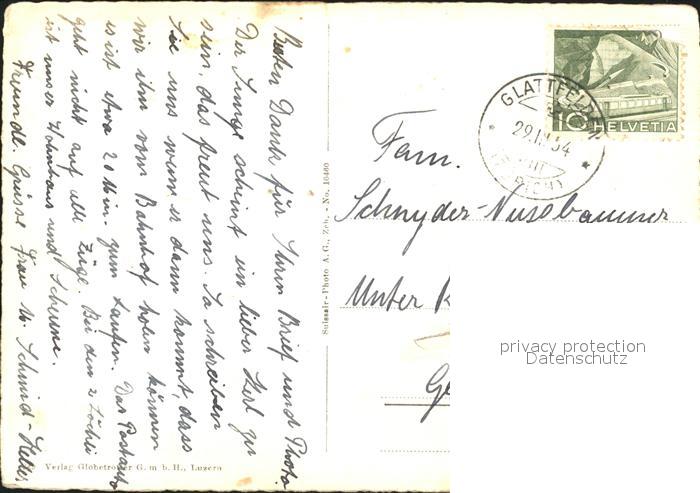 Besten Dank für Ihren Brief und Photo.
Der Junge scheint ein lieber Kerl zu
sein, das freut uns. So schreiben
Sie uns wenn er dann kommt, dass
wir ihn vom Bahnhof holen können
es ist etwa 20 Min. zum Laufen. Das Postauto
geht nicht auf alle Züge. Bei den 2
ist unser Wohnhaus und Scheune.
Freundl. Grüsse Frau M. Schmid-Keller
Verlag Globetrotter G. m b. H., Luzern
Suissair-Photo A. G., Zch. - No. 10400
GLATTFELDEN
(ZÜRICH)
10 HELVETIA
Fam.
Schnyder-Nussbaumer
Unter
privacy protection
Datenschutz